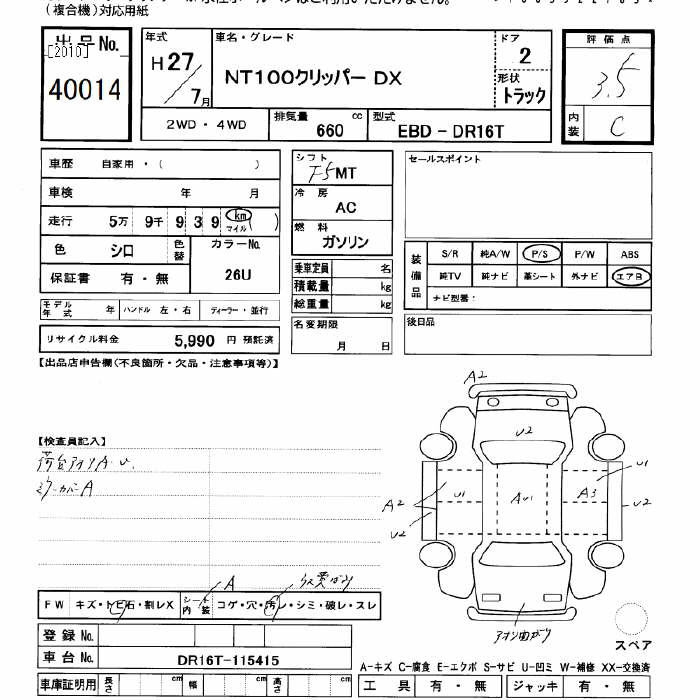 (複合機)対応用紙
出品No.
[2010]
40014
年式
H27
7月
車名・グレード
NT100クリッパー DX
ドア
2
形状
トラック
2WD・4WD
排気量
660 cc
型式
EBD-DR16T
評価点
3.5
内装
C
車歴 自家用・( )
車検 年 月
走行 5万 9千 9 3 9 km マイル ( )
色 シロ 色替
カラーNo.
26U
保証書 有・無
モデル年式 年 ハンドル 左・右 ディーラー・並行
リサイクル料金 5,990 円 預託済
シフト
F5 MT
冷房
AC
燃料
ガソリン
乗車定員 名
積載量 kg
総重量 kg
名変期限
月 日
セールスポイント
装備品
S/R 純A/W P/S P/W ABS
純TV 純ナビ 革シート 外ナビ エアB
ナビ型番:
後日品
【出品店申告欄(不良箇所・欠品・注意事項等)】
【検査員記入】
荷台アオリA・U
ミラーカバーA
A2
U2
U1
A2
U1
AU1
A3
U2
U2
アオリ曲がり
スペア
A
FW キズ・トビ石・割レX
シート内装 コゲ・穴・汚レ・シミ・破レ・スレ
登録No.
車台No. DR16T-115415
車庫証明用 長さ cm 幅 cm 高さ cm
A-キズ C-腐食 E-エクボ S-サビ U-凹ミ W-補修 XX-交換済
工具 有・無 ジャッキ 有・無